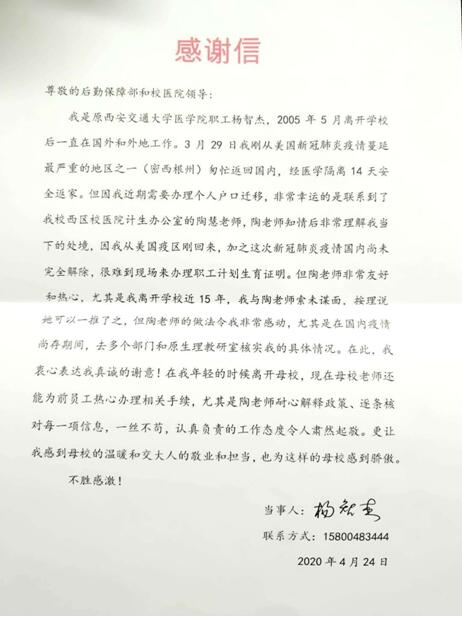 感谢信
尊敬的后勤保障部和校医院领导:
我是原西安交通大学医学院职工杨智杰，2005 年 5 月离开学校
后一直在国外和外地工作。3 月 29 日我刚从美国新冠肺炎疫情蔓延
最严重的地区之一（密西根州）匆忙返回国内，经医学隔离 14 天安
全返家。但因我近期需要办理个人户口迁移，非常幸运的是联系到了
我校西区校医院计生办公室的陶慧老师，陶老师知情后非常理解我当
下的处境，因我从美国疫区刚回来，加之这次新冠肺炎疫情国内尚未
完全解除，很难到现场来办理职工计划生育证明。但陶老师非常友好
和热心，尤其是我离开学校近 15 年，我与陶老师素未谋面，按理说
她可以一推了之，但陶老师的做法令我非常感动，尤其是在国内疫情
尚存期间，去多个部门和原生理教研室核实我的具体情况。在此，我
衷心表达我真诚的谢意！在我年轻的时候离开母校，现在母校老师还
能为前员工热心办理相关手续，尤其是陶老师耐心解释政策、逐条核
对每一项信息，一丝不苟，认真负责的工作态度令人肃然起敬。更让
我感到母校的温暖和交大人的敬业和担当，也为这样的母校感到骄傲。
不胜感激！
当事人：杨智杰
联系方式：15800483444
2020 年 4 月 24 日